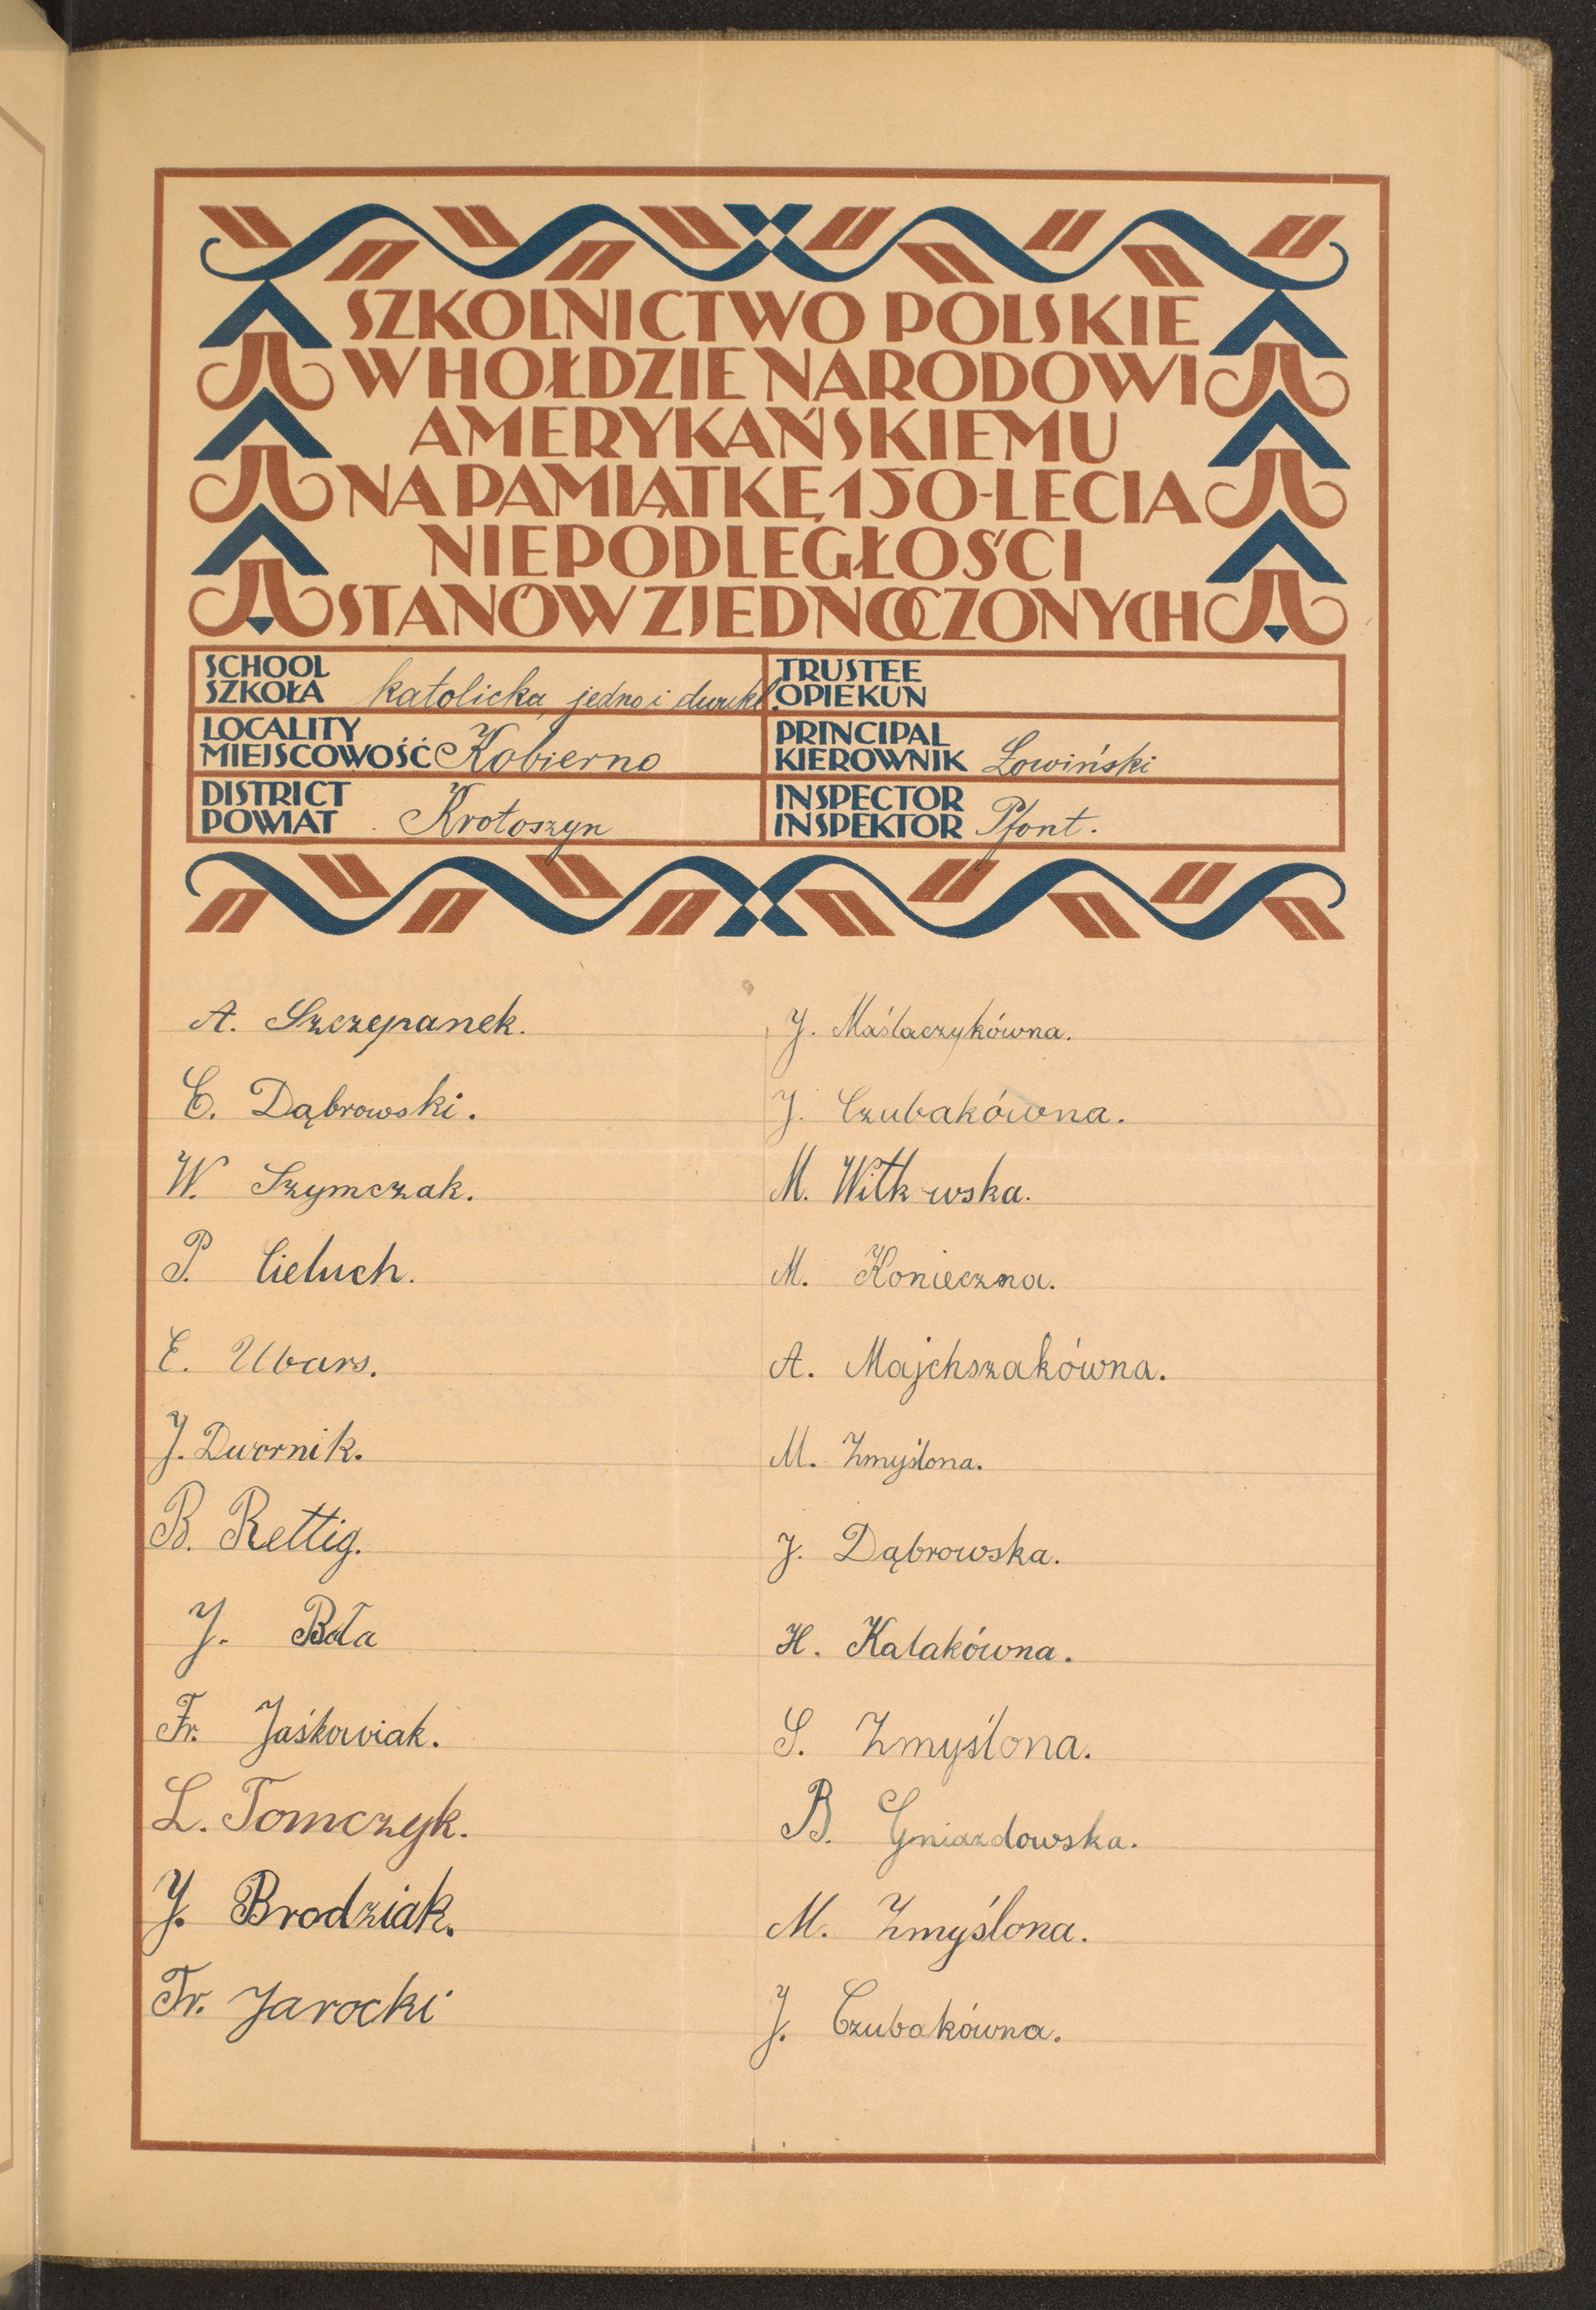 SZKOLNICTWO POLSKIE
W HOŁDZIE NARODOWI
AMERYKAŃSKIEMU
NA PAMIĄTKĘ 150-LECIA
NIEPODLEGŁOŚCI
STANÓW ZJEDNOCZONYCH
SCHOOL
SZKOŁA katolicka, jedno i dwukl.
TRUSTEE
OPIEKUN
LOCALITY
MIEJSCOWOŚĆ Kobierno
PRINCIPAL
KIEROWNIK Łowiński
DISTRICT
POWIAT Krotoszyn
INSPECTOR
INSPEKTOR Pfont.
A. Szczepanek.
C. Dąbrowski.
W. Szymczak.
P. Cieluch.
E. Ubars.
J. Dwornik.
B. Rettig.
J. Bała
Fr. Jaśkowiak.
L. Tomczyk.
J. Brodziak.
Fr. Jarocki
J. Maślaczykówna.
J. Czubakówna.
M. Witkowska.
M. Konieczna.
A. Majchszakówna.
M. Zmyślona.
J. Dąbrowska.
H. Kalakówna.
S. Zmyślona.
B. Gniazdowska.
M. Zmyślona.
J. Czubakówna.